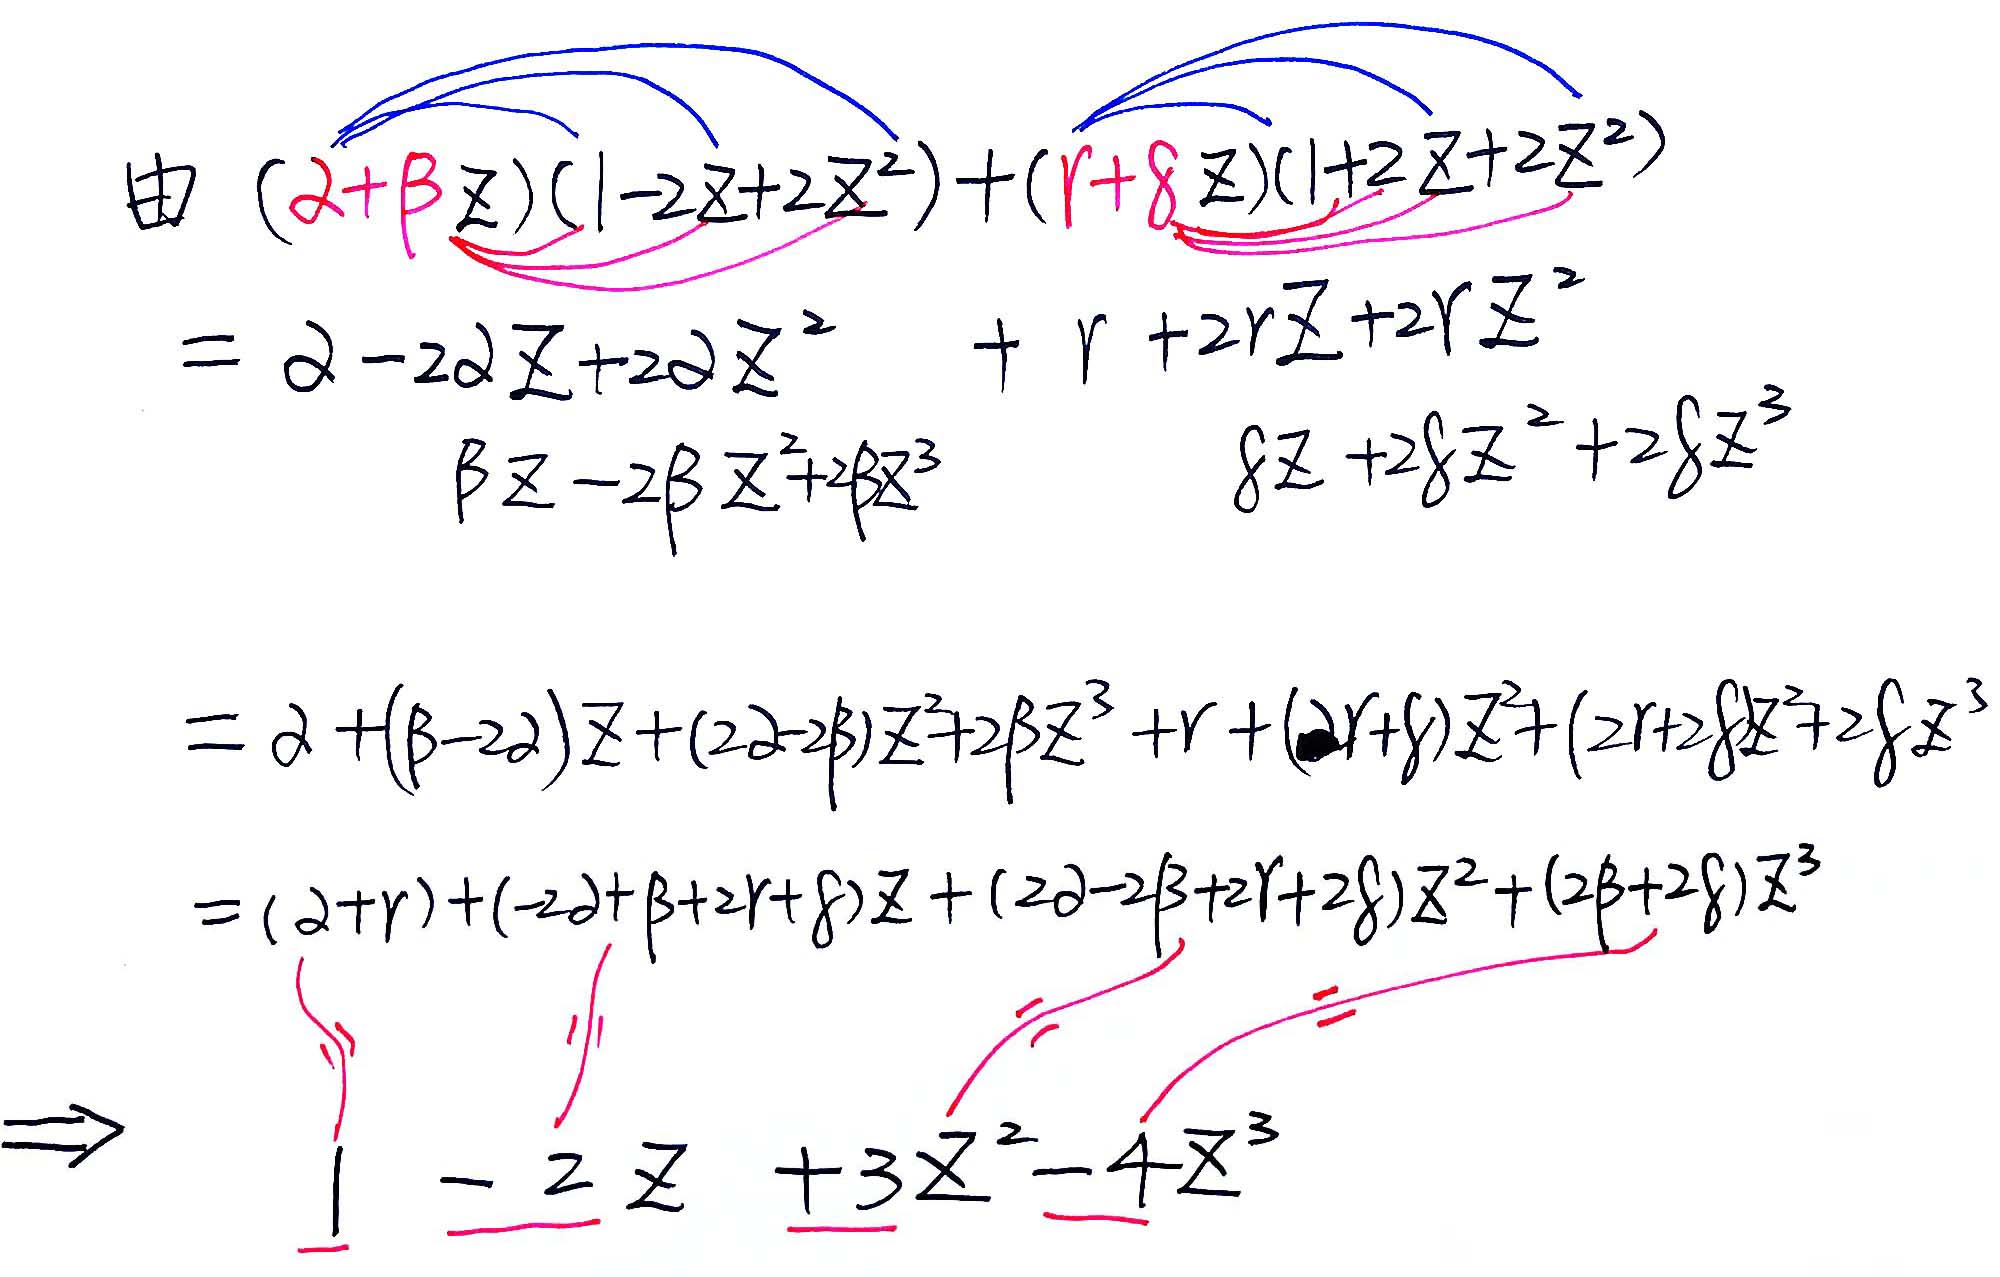 由 (α+βZ)(1-2Z+2Z²)+(γ+δZ)(1+2Z+2Z²)
= α-2αZ+2αZ² + γ+2γZ+2γZ²
βZ-2βZ²+2βZ³ δZ+2δZ²+2δZ³
= α+(β-2α)Z+(2α-2β)Z²+2βZ³+γ+(2γ+δ)Z²+(2γ+2δ)Z²+2δZ³
=(α+γ)+(-2α+β+2γ+δ)Z+(2α-2β+2γ+2δ)Z²+(2β+2δ)Z³
⇒ 1 -2Z +3Z²-4Z³